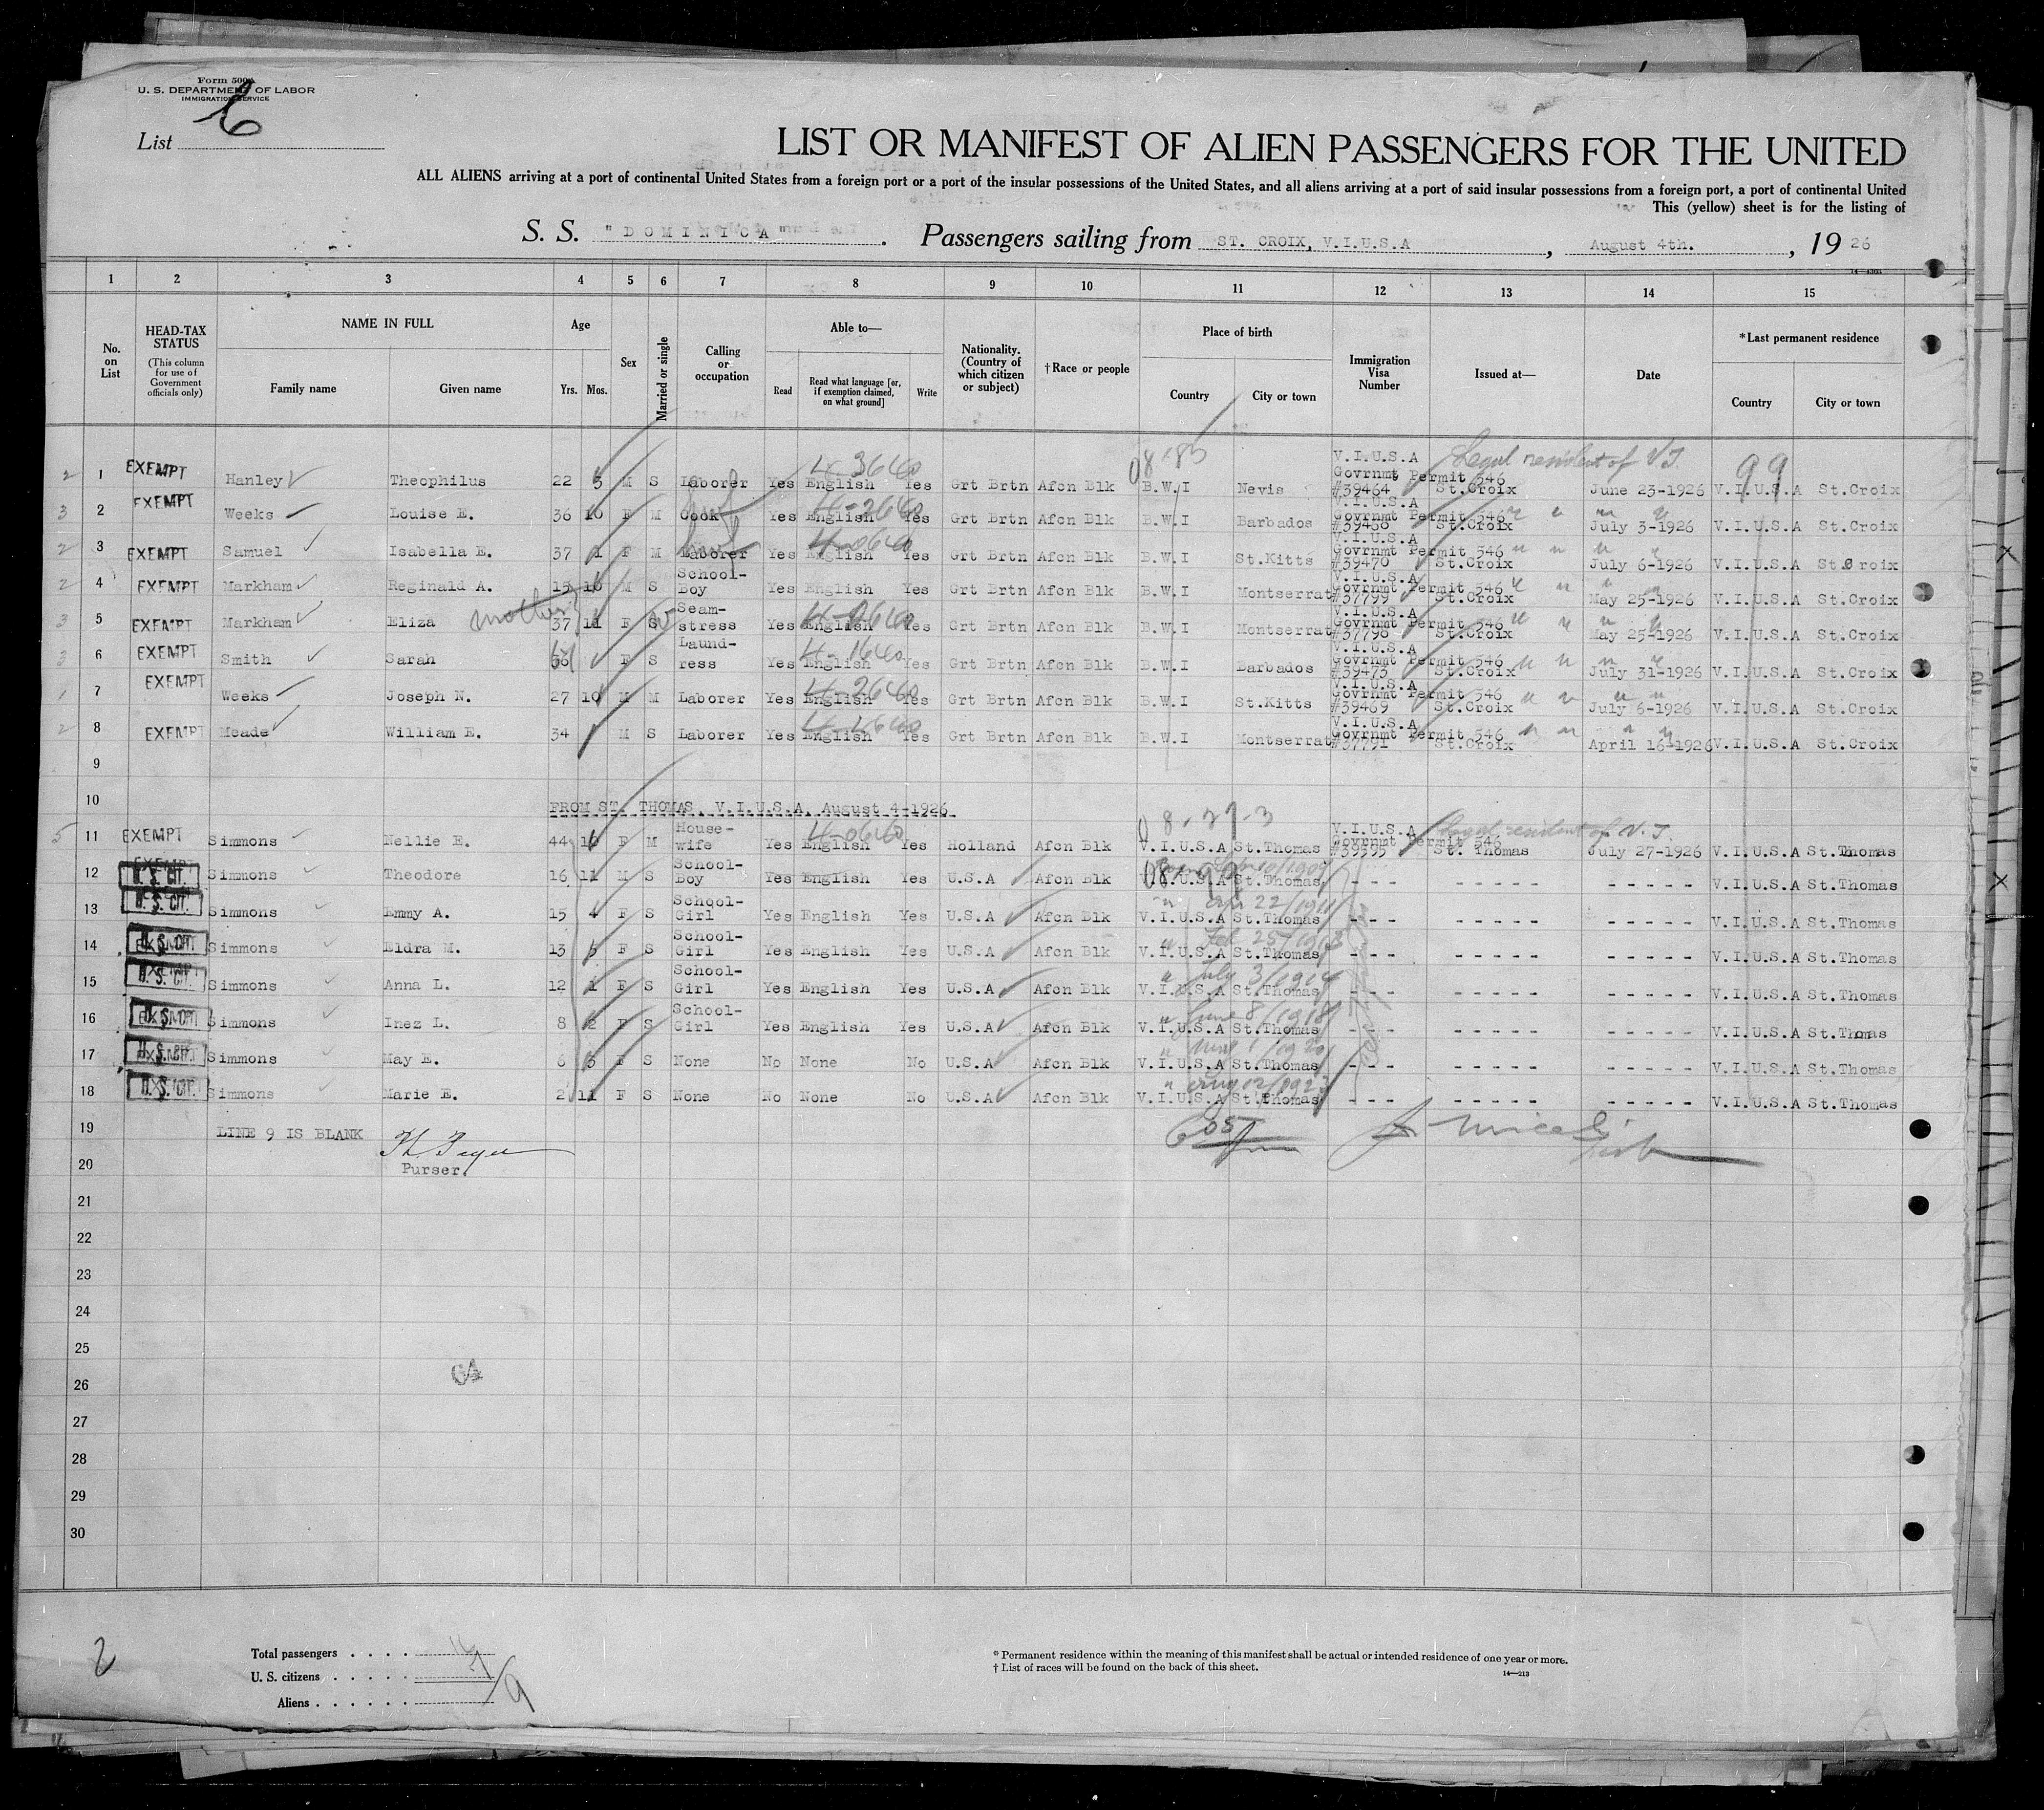 Form 500A
U. S. DEPARTMENT OF LABOR
IMMIGRATION SERVICE
List
LIST OR MANIFEST OF ALIEN PASSENGERS FOR THE UNITED
ALL ALIENS arriving at a port of continental United States from a foreign port or a port of the insular possessions of the United States, and all aliens arriving at a port of said insular possessions from a foreign port, a port of continental United
This (yellow) sheet is for the listing of
S. S. "DOMINICA". Passengers sailing from ST. CROIX, V.I.U.S.A, August 4th., 1926
1 2 3 4 5 6 7 8 9 10 11 12 13 14 15
No. on List
HEAD-TAX STATUS
(This column for use of Government officials only)
NAME IN FULL
Family name Given name
Age
Yrs. Mos.
Sex
Married or single
Calling or occupation
Able to—
Read
Read what language [or, if exemption claimed, on what ground]
Write
Nationality. (Country of which citizen or subject)
†Race or people
Place of birth
Country City or town
Immigration Visa Number
Issued at—
Date
*Last permanent residence
Country City or town
2 1 EXEMPT Hanley Theophilus 22 5 M S Laborer Yes English 4-3640 Yes Grt Brtn Afcn Blk B.W.I Nevis V.I.U.S.A Govrnmt Permit 546 #39464 St.Croix Legal resident of V.I. June 23-1926 V.I.U.S.A St.Croix
3 2 EXEMPT Weeks Louise E. 36 10 F M Cook Yes English 4-2640 Yes Grt Brtn Afcn Blk B.W.I Barbados V.I.U.S.A Govrnmt Permit 546 St.Croix July 3-1926 V.I.U.S.A St.Croix
2 3 EXEMPT Samuel Isabella E. 37 1 F M Laborer Yes English 4-0640 Yes Grt Brtn Afcn Blk B.W.I St.Kitts V.I.U.S.A Govrnmt Permit 546 #39470 St.Croix July 6-1926 V.I.U.S.A St.Croix
2 4 EXEMPT Markham Reginald A. 15 10 M S School-Boy Yes English Yes Grt Brtn Afcn Blk B.W.I Montserrat V.I.U.S.A Govrnmt Permit 546 #37799 St.Croix May 25-1926 V.I.U.S.A St.Croix
3 5 EXEMPT Markham Eliza mother 37 11 F S Seam-stress Yes English Yes Grt Brtn Afcn Blk B.W.I Montserrat V.I.U.S.A Govrnmt Permit 546 #37798 St.Croix May 25-1926 V.I.U.S.A St.Croix
3 6 EXEMPT Smith Sarah F S Laund-ress Yes English 4-1640 Yes Grt Brtn Afcn Blk B.W.I Barbados V.I.U.S.A Govrnmt Permit 546 #39473 St.Croix July 31-1926 V.I.U.S.A St.Croix
1 7 EXEMPT Weeks Joseph N. 27 10 M M Laborer Yes English 4-2640 Yes Grt Brtn Afcn Blk B.W.I St.Kitts V.I.U.S.A Govrnmt Permit 546 #39469 St.Croix July 6-1926 V.I.U.S.A St.Croix
2 8 EXEMPT Meade William E. 34 M S Laborer Yes English Yes Grt Brtn Afcn Blk B.W.I Montserrat V.I.U.S.A Govrnmt Permit 546 #37791 St.Croix April 16-1926 V.I.U.S.A St.Croix
9
10 FROM ST. THOMAS, V.I.U.S.A. August 4-1926
5 11 EXEMPT Simmons Nellie E. 44 10 F M House-wife Yes English 4-0640 Yes Holland Afcn Blk V.I.U.S.A St.Thomas V.I.U.S.A Govrnmt Permit 546 #39395 St. Thomas Legal resident of V.I. July 27-1926 V.I.U.S.A St.Thomas
12 U. S. CIT. Simmons Theodore 16 11 M S School-Boy Yes English Yes U.S.A Afcn Blk V.I.U.S.A St.Thomas - - - - - - - - - - - - - V.I.U.S.A St.Thomas
13 U. S. CIT. Simmons Emmy A. 15 4 F S School-Girl Yes English Yes U.S.A Afcn Blk V.I.U.S.A St.Thomas 22/1911 - - - - - - - - - - - - - V.I.U.S.A St.Thomas
14 U. S. CIT. Simmons Eldra M. 13 5 F S School-Girl Yes English Yes U.S.A Afcn Blk V.I.U.S.A St.Thomas Feb 25/1913 - - - - - - - - - - - - - V.I.U.S.A St.Thomas
15 U. S. CIT. Simmons Anna L. 12 1 F S School-Girl Yes English Yes U.S.A Afcn Blk V.I.U.S.A St.Thomas July 3/1914 - - - - - - - - - - - - - V.I.U.S.A St.Thomas
16 U. S. CIT. Simmons Inez L. 8 2 F S School-Girl Yes English Yes U.S.A Afcn Blk V.I.U.S.A St.Thomas June 8/1918 - - - - - - - - - - - - - V.I.U.S.A St.Thomas
17 U. S. CIT. Simmons May E. 6 3 F S None No None No U.S.A Afcn Blk V.I.U.S.A St.Thomas - - - - - - - - - - - - - V.I.U.S.A St.Thomas
18 U. S. CIT. Simmons Marie E. 2 11 F S None No None No U.S.A Afcn Blk V.I.U.S.A St.Thomas Aug 12/1923 - - - - - - - - - - - - - V.I.U.S.A St.Thomas
19 LINE 9 IS BLANK
20 Purser.
21
22
23
24
25
26
27
28
29
30
2
Total passengers . . . .
U. S. citizens . . . . . 7
Aliens . . . . . . 9
* Permanent residence within the meaning of this manifest shall be actual or intended residence of one year or more.
† List of races will be found on the back of this sheet.
14—213